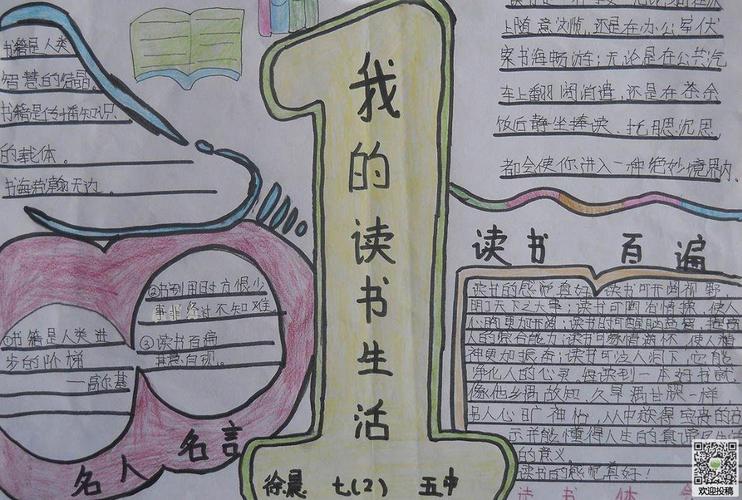 书籍是人类
智慧的结晶
书籍是传播知识
的载体。
书海若瀚无边。
上随意浏览,还是在办公室伏
案书海畅游;无论是在公共汽
车上翻阅消遣,还是在茶余
饭后静坐捧读、托腮沉思,
都会使你进入一种绝妙境界内。
我的读书生活
徐晨 七(2) 五中
①书籍是人类进
步的阶梯
——高尔基
②书到用时方恨少
事非经过不知难
③读书百遍
其意自现。
名人名言
读书百遍
读书的感觉真好!读书可开阔视野,
明了天下之大事;读书可陶冶情操,使人
心胸更加开阔;读书可
的综合能力;读书可
神更加振奋;读书可
净化人的心灵,每读到一本好书就
像他乡遇故知,久旱遇甘霖一样
书人心旷神怡,从中获得宝贵的
示书能懂得人生的真谛
的意义。
读书的感觉真好!
读书体会
欢迎投稿